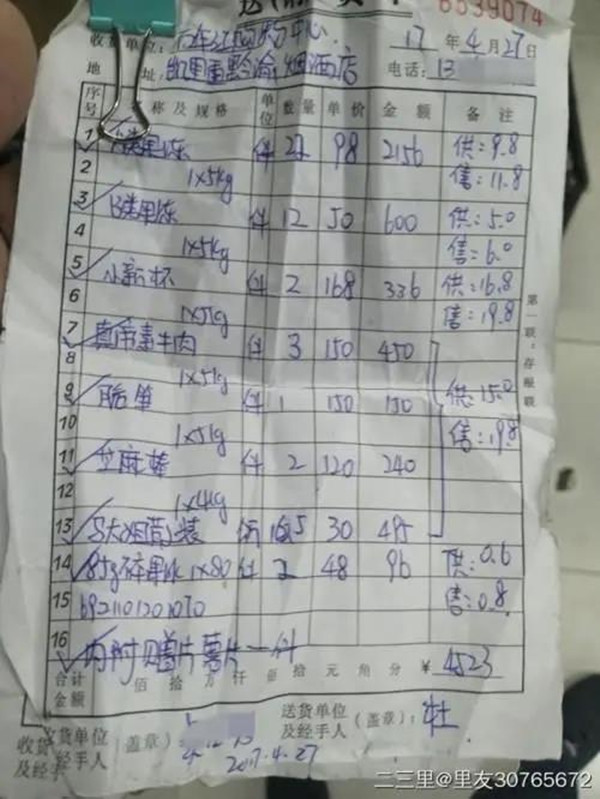 6639074
收货单位:
17 年 4 月 27 日
地 址: 烟酒店 电话: 13
序号 名称及规格 单位 数量 单价 金额 备注
1 果冻 件 22 98 2156 供:9.8
2 1x5kg 售:11.8
3 B类果冻 件 12 50 600 供:5.0
4 1x5kg 售:6.0
5 小新杯 件 2 168 336 供:16.8
6 1x5kg 售:19.8
7 素牛肉 件 3 150 450
8 1x5kg
9 脆笛 件 1 150 150 供:15.0
10 1x5kg 售:19.8
11 芝麻棒 件 2 120 240
12 1x4kg
13 装 16.5 30 495
14 85g碎果冰 1x80 件 2 48 96 供:0.6
15 6921101201070 售:0.8
16 内附 薯片一件
合计金额 佰 拾 万 仟 佰 拾 元 角 分 ¥ 4523
收货单位及经手人 (盖章): 送货单位及经手人 (盖章): 杜
2017.4.27
第一联:存根联
二三里@里友30765672